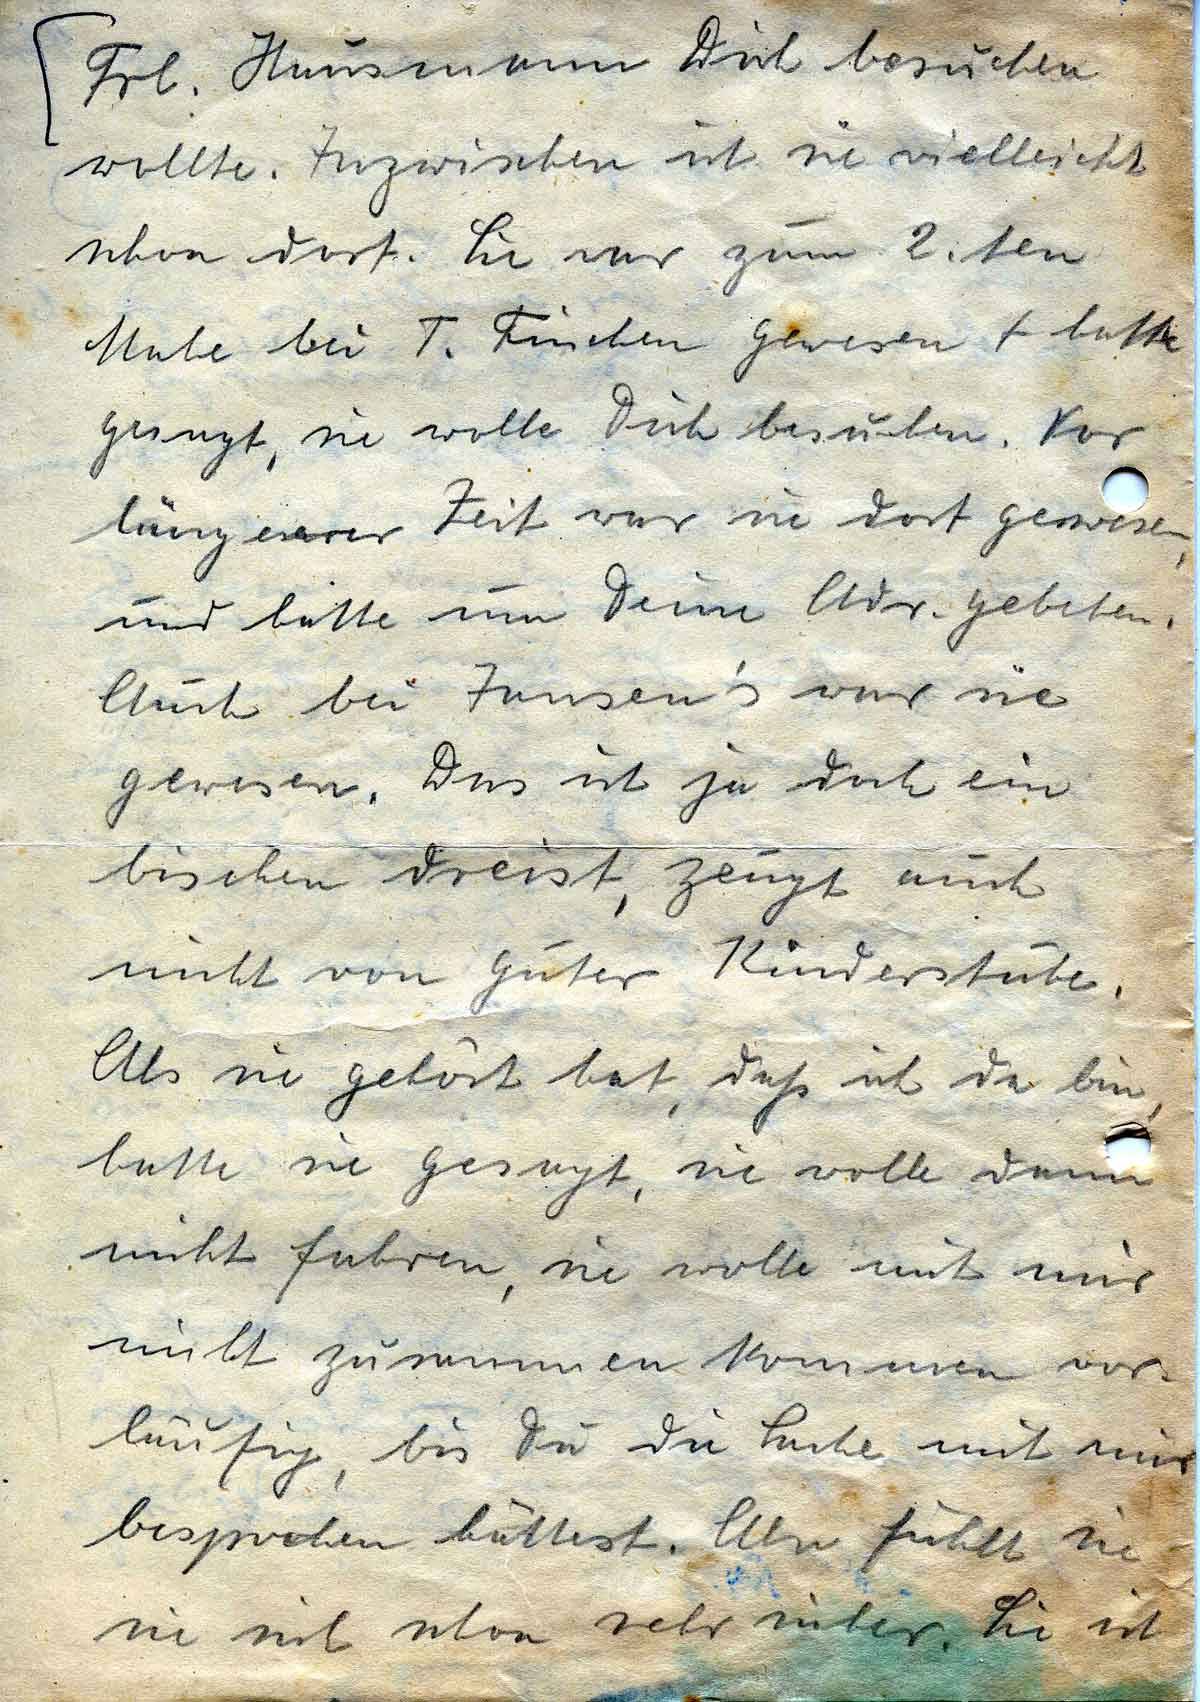 Frl. Hausmann Dich besuchen
wollte. Inzwischen ist sie vielleicht
schon dort. Sie war zum 2. ten
Male bei T. Finchen gewesen + hatte
gesagt, sie wolle Dich besuchen. Vor
längerer Zeit war sie dort gewesen,
und hatte um Deine Adr. gebeten.
Auch bei Jansen's war sie
gewesen. Das ist ja doch ein
bischen dreist, zeugt auch
nicht von guter Kinderstube.
Als sie gehört hat, daß ich da bin,
hatte sie gesagt, sie wolle dann
nicht fahren, sie wolle mit mir
nicht zusammen kommen vor-
läufig, bis Du die Sache mit mir
besprochen hättest. Also fühlt sie
sie sich schon sehr sicher. Sie ist